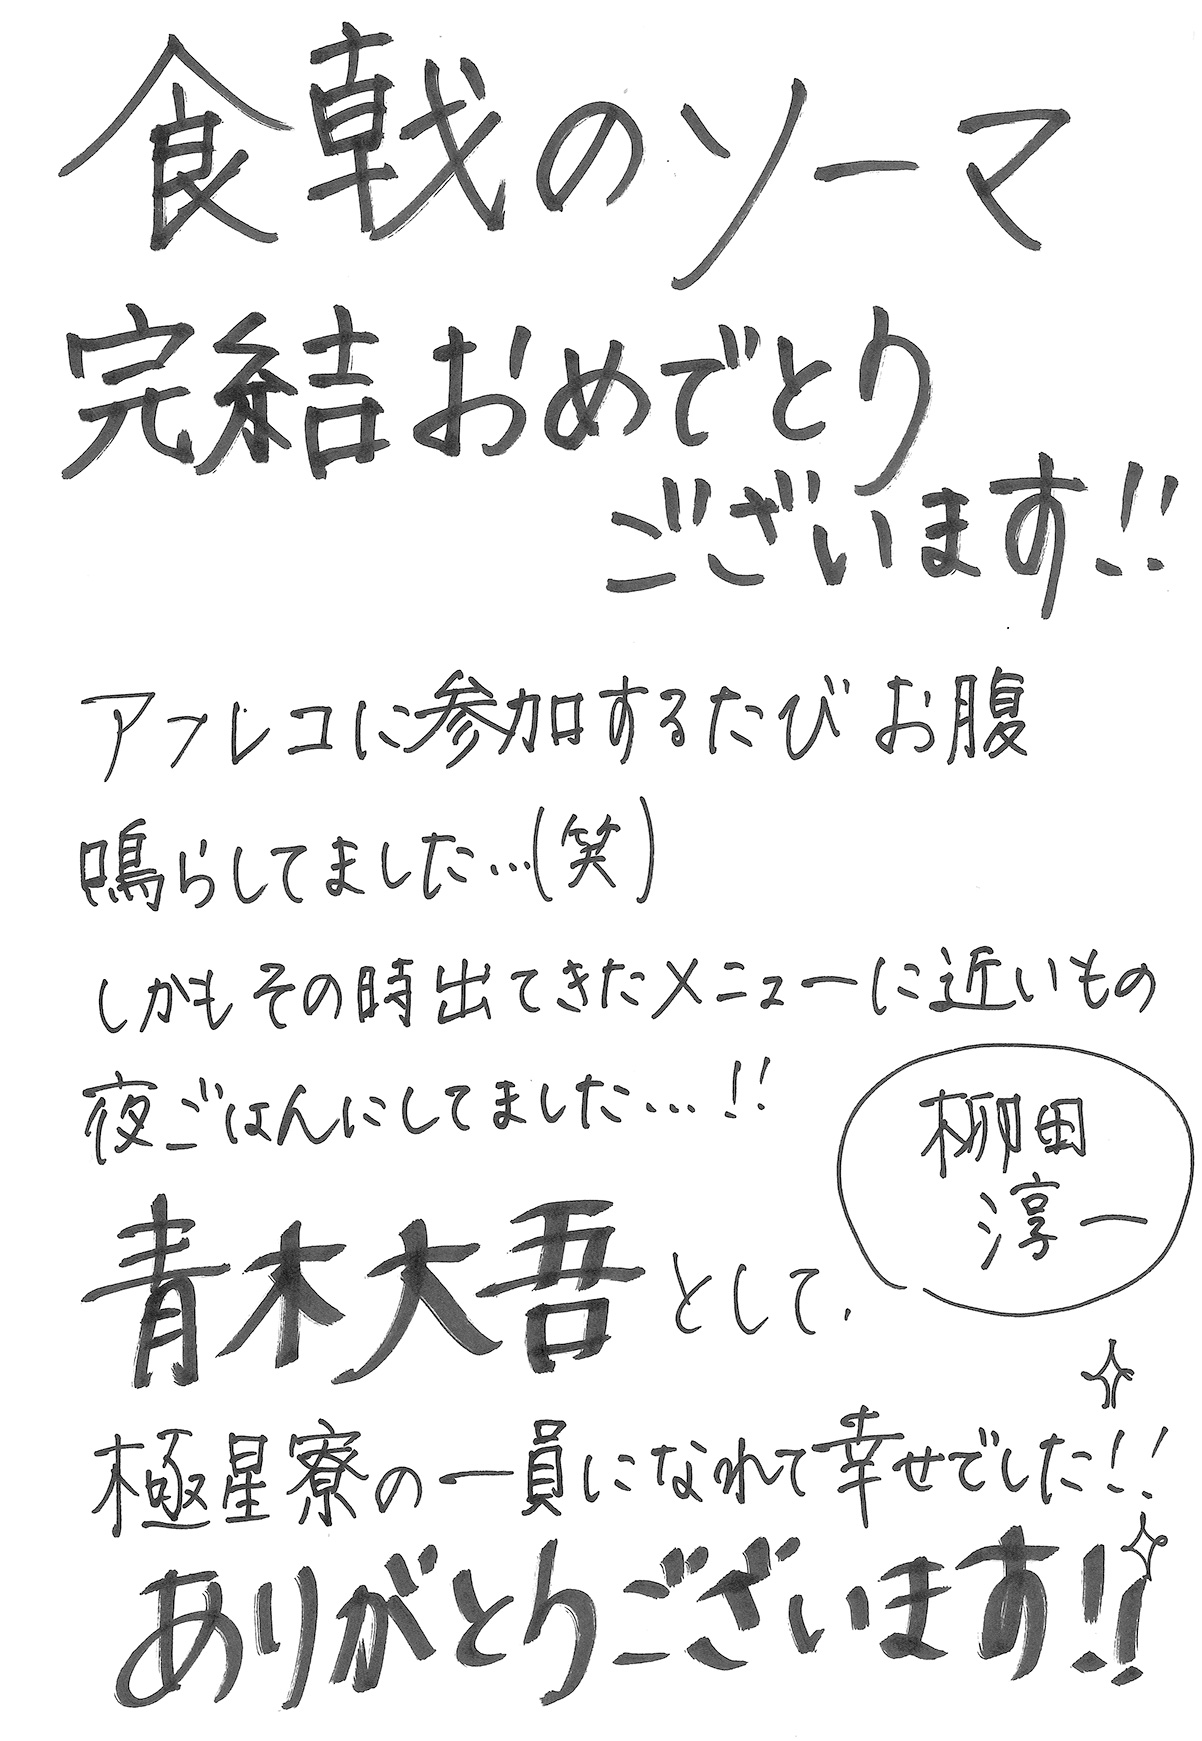 食戟のソーマ
完結おめでとり
ございます!!
アフレコに参加するたびお腹
鳴らしてました…(笑)
しかもその時出てきたメニューに近いもの
夜ごはんにしてました…!!
柳田
淳一
青木大吾として、
極星寮の一員になれて幸せでした!!
ありがとりございます!!